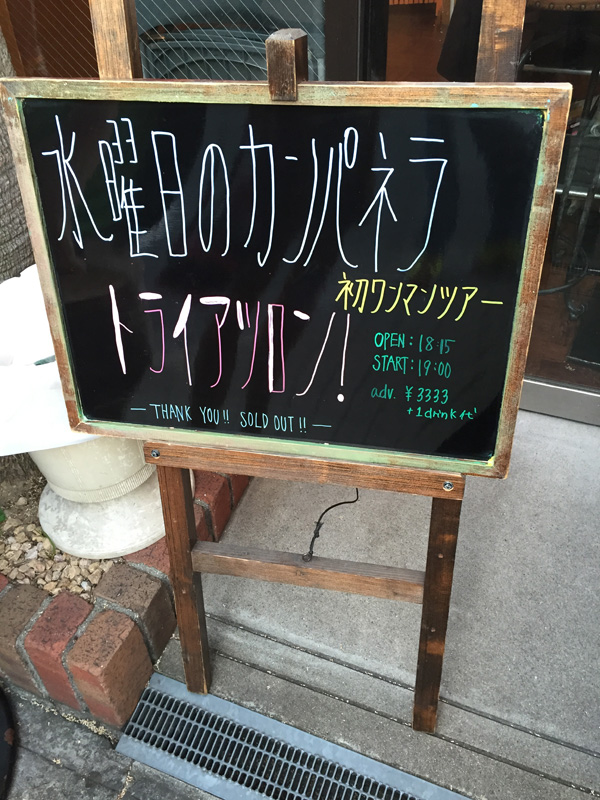 水曜日のカンパネラ
初ワンマンツアー
トライアツロン!
OPEN: 18:15
START: 19:00
adv. ¥3333
+1drink
— THANK YOU!! SOLD OUT!! —